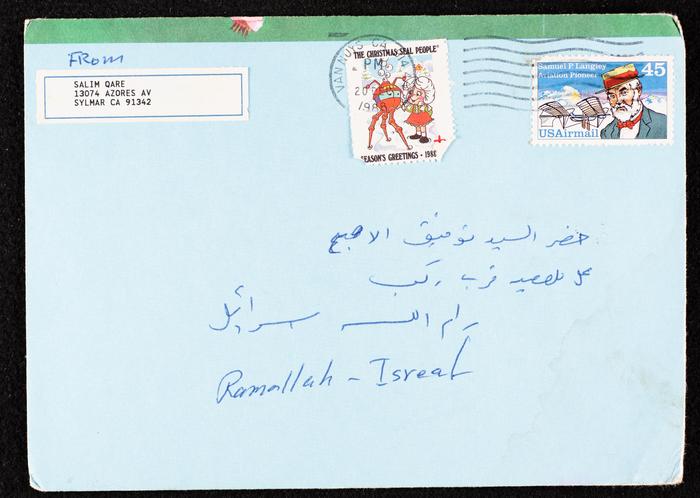 FROM
SALIM QARE
13074 AZORES AV
SYLMAR CA 91342
VAN NUYS CA
PM
20
198
"THE CHRISTMAS SEAL PEOPLE"
SEASON'S GREETINGS · 1988
Samuel P. Langley
Aviation Pioneer
45
USAirmail
حضر السيد توفيق
قرب ركب
رام الله
Ramallah - Isreal